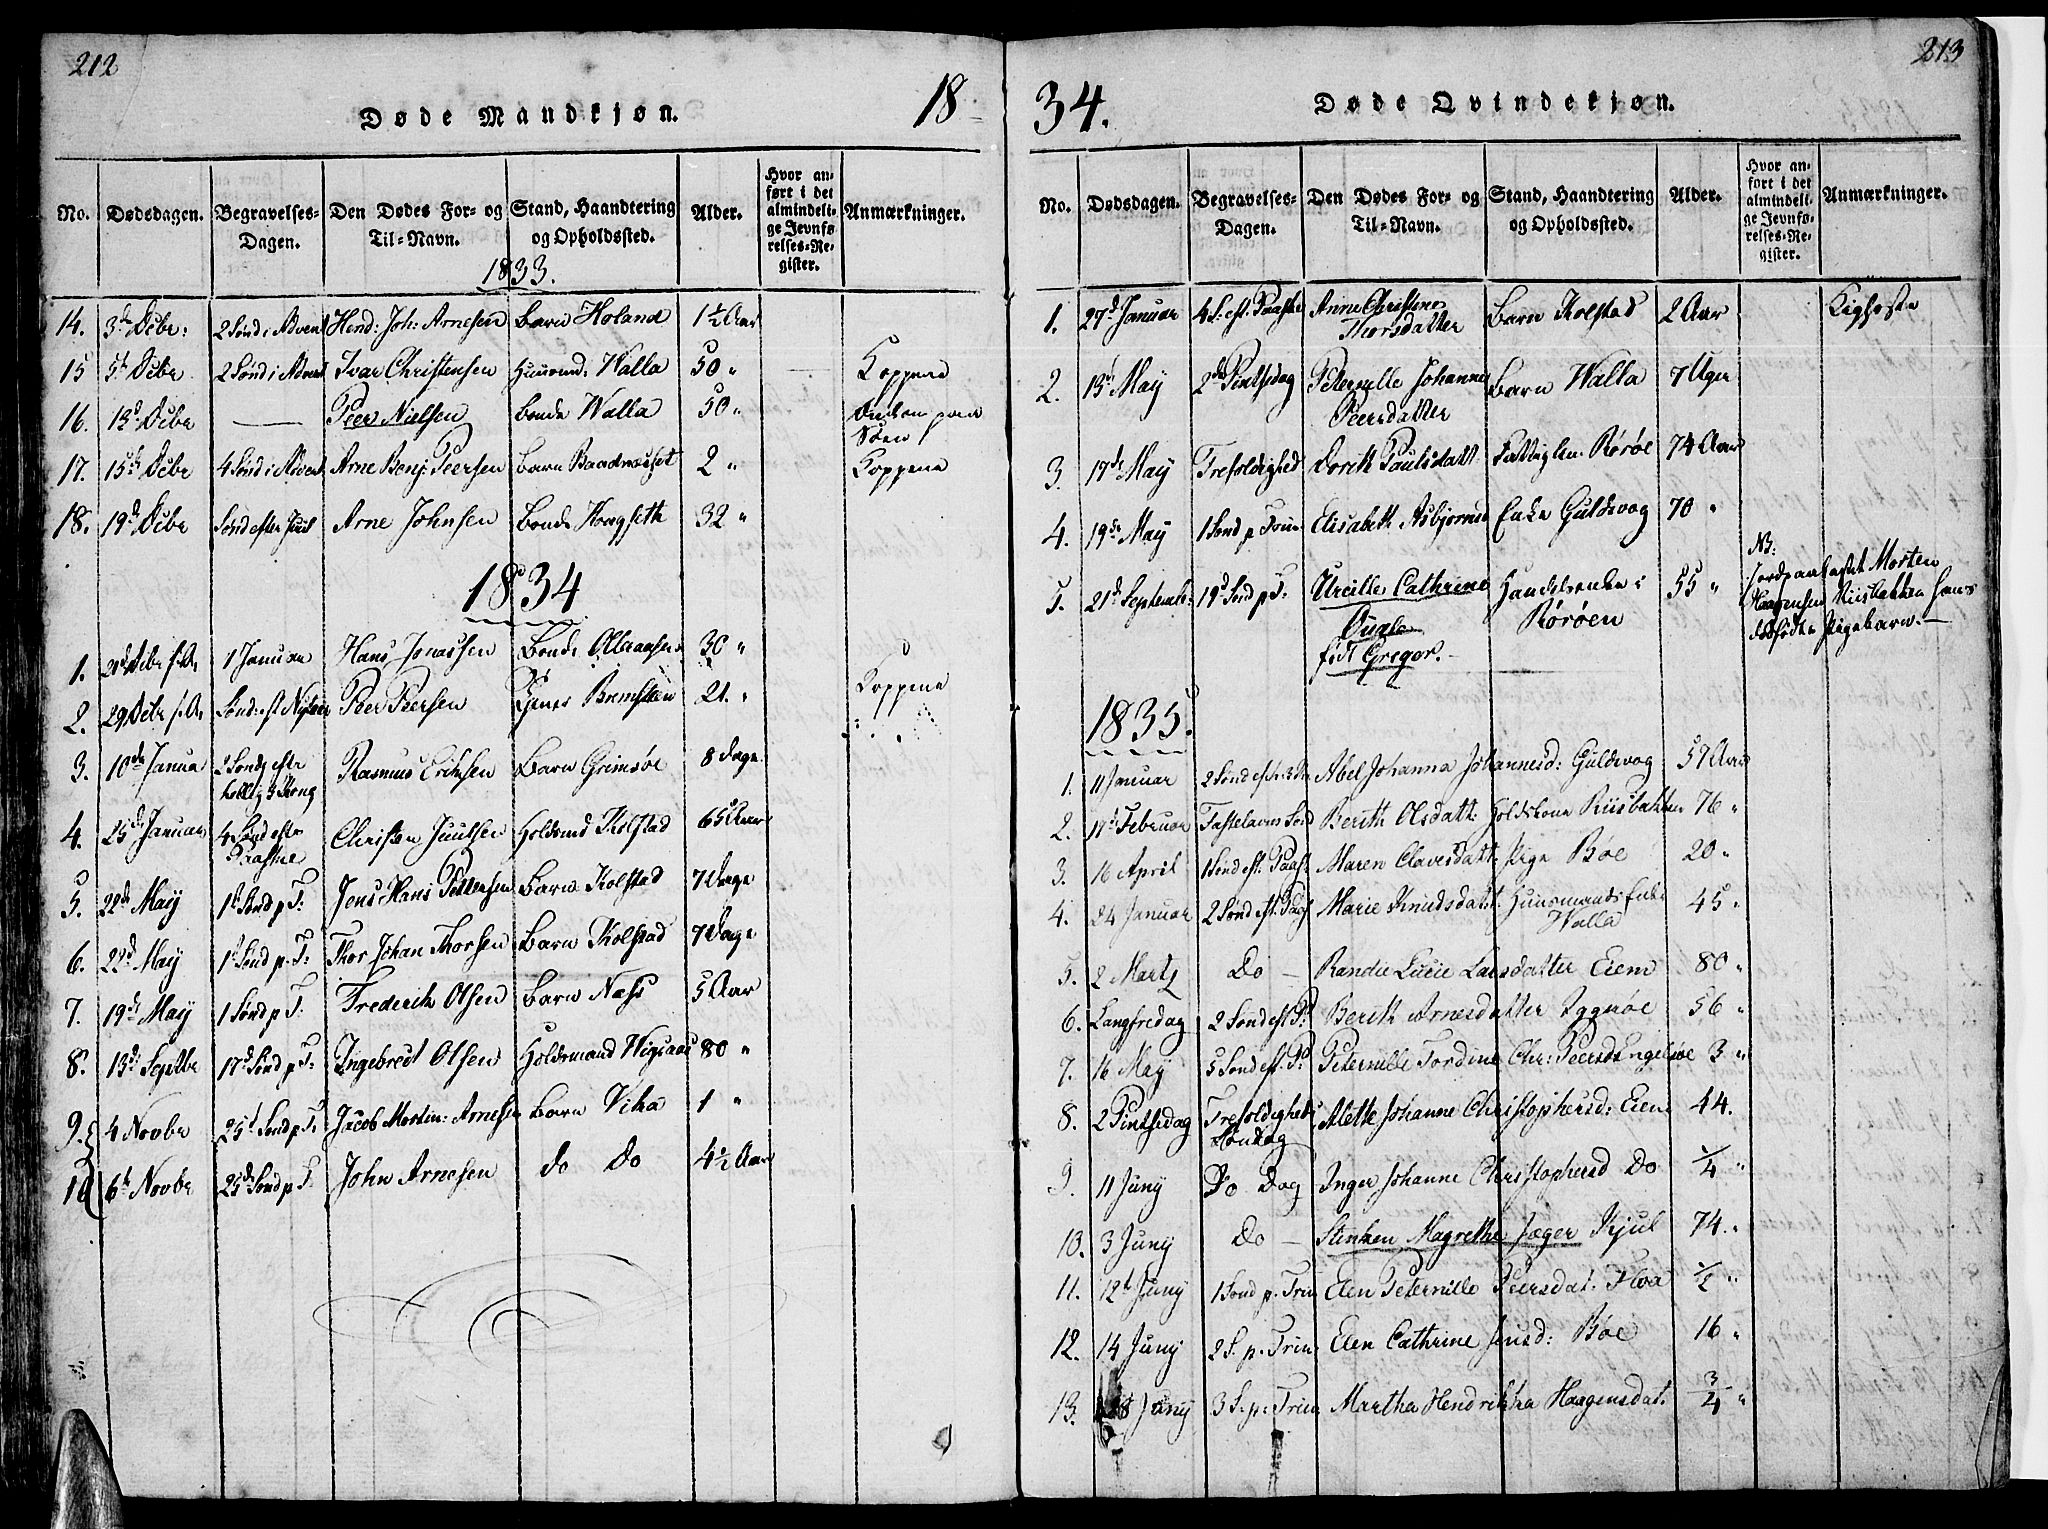 212
Døde Mandkjøn.
18
No.
Dødsdagen.
Begravelses-Dagen.
Den Dødes For- og Til-Navn.
Stand, Haandtering og Opholdssted.
Alder.
Hvor anført i det almindelige Jevnførelses-Register.
Anmærkninger.
1833.
14. 3de Debr: 2 Sønd i Advent Hend: Joh: Arnesen Barn Holand 1½ Aar
15 5te Debr 2 Sønd i Advent Ivar Christensen Huusmd: Walla 50 " Koppene
16. 13d Debr — Peer Nielsen Bonde Walla 50 "
17. 15de Debr 4 Sønd i Advent Arne Benj: Peersen Barn Baadnæsset 2 " Koppene
18. 19d Debr Sønd efter Juul Arne Johnsen Bonde Kongseth 32 "
1834
1. 21d Debr f: A 1 Januar Hans Jonassen Bonde 30 "
2. 29 Debr f: A Sønd: eft Nytaar Peer Peersen Bremsteen 21. " Koppene
3. 10de Janua 2 Sønd efter hellig 3 Kong Rasmus Eriksen Barn Grimsøe 8 Dage
4. 25de Januar 4 Sønd efter Paaske Christen Juulsen Holdsmd Kolstad 65 Aar
5. 22de May 1te Sønd p T: Jens Hans Pettersen Barn Kolstad 7 Dage
6. 22d May 1te Sønd p. T: Thor Johan Thorsen Barn Kolstad 7 Dage
7. 19de May 1 Sønd p T: Frederik Olsen Barn Næss 5 Aar
8. 13d: Septbr 17d Sønd p T: Ingebregt Olsen Holdsmand 80 "
9. 4 Novbr 25d Sønd p T: Jacob Morten: Arnesen Barn Vika 1 "
10 6te Novbr 25de Sønd p T. John Arnesen do Do 4½ Aar
213
34.
Døde Qvindekjøn.
No.
Dødsdagen.
Begravelses-Dagen.
Den Dødes For- og Til-Navn.
Stand, Haandtering og Opholdssted.
Alder.
Hvor anført i det almindelige Jevnførelses-Register.
Anmærkninger.
1. 27d Januar 4 S: eft. Paaske Anne Christine Thorsdatter Barn Kolstad 2 Aar Kighoste
2. 13d May 2den Pintsedag Peternille Johanne Peersdatter Barn Walla 7 Uger
3. 17de May Trefoldighed Dorith Paulsdatt Fattiglem: Rørøe 74 Aar
4. 19de May 1 Sønd p Trin Elisabeth Asbjørnsd Enke Guldvog 70 "
5. 21de September: 19d Sønd p T: Urcille Cathrine
født Gregor. Handelsenke i Rørøen 55 "
NB: Jordpaakastet Morten Haagensen Riisbakken hans dødfødte Pigebarn. —
1835.
1. 11 Januar Abel Johanna Johannesd: Guldvog 57 Aar
2. 17d Februar Fastelavns Sønd Berith Olsdatt: Holdskone Riisbakken 76 "
3. 16 April 1 Sønd eft. Paas: Maren Clavesdatt: Pige Bøe 20 "
4. 24 Januar 2 Sønd eft. Paas: Marie Knudsdatt. Huusmands Enke Walla 45 "
5. 2 Martz Do — Randie Lucie Larsdatter Eiem 80 "
6. Langfredag 2 Sønd eft P: Berith Arnesdatter 56 "
7. 16 May 5 Sønd eft. P: Peternille Tordine Chr: Peersd: 3 "
8. 2 Pintsedag Trefoldigheds Søndag Alette Johanne Christophersd: Eiem 44.
9. 11 Juny Do Dag Inger Johanne Christophersd Do ¼ "
10. 3 Juny Do — Stinken Magrethe Jæger Kjul 74. "
11. 12te Juny 1 Sønd p. Trin Elen Peternille Peersdat: Hoa ½ "
12. 14 Juny 2 S. p. Trin Elen Cathrine Jensd: Bøe 16 "
13. 28 Juny 3 S. p: Trin Martha Hendrikka Haagensdat. ¾ "